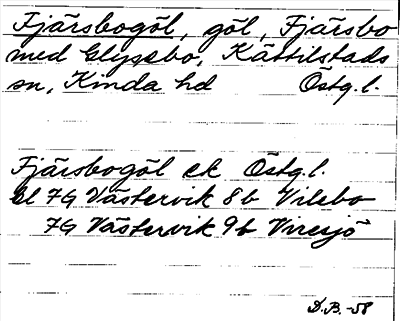 Fjärsbogöl, göl, Fjärsbo
med Glyssebo, Kättilstads
sn, Kinda hd Östg. l.
Fjärsbogöl ek Östg. l.
bl 7G Västervik 8b Vilebo
7G Västervik 9b Viresjö
D.B.-58